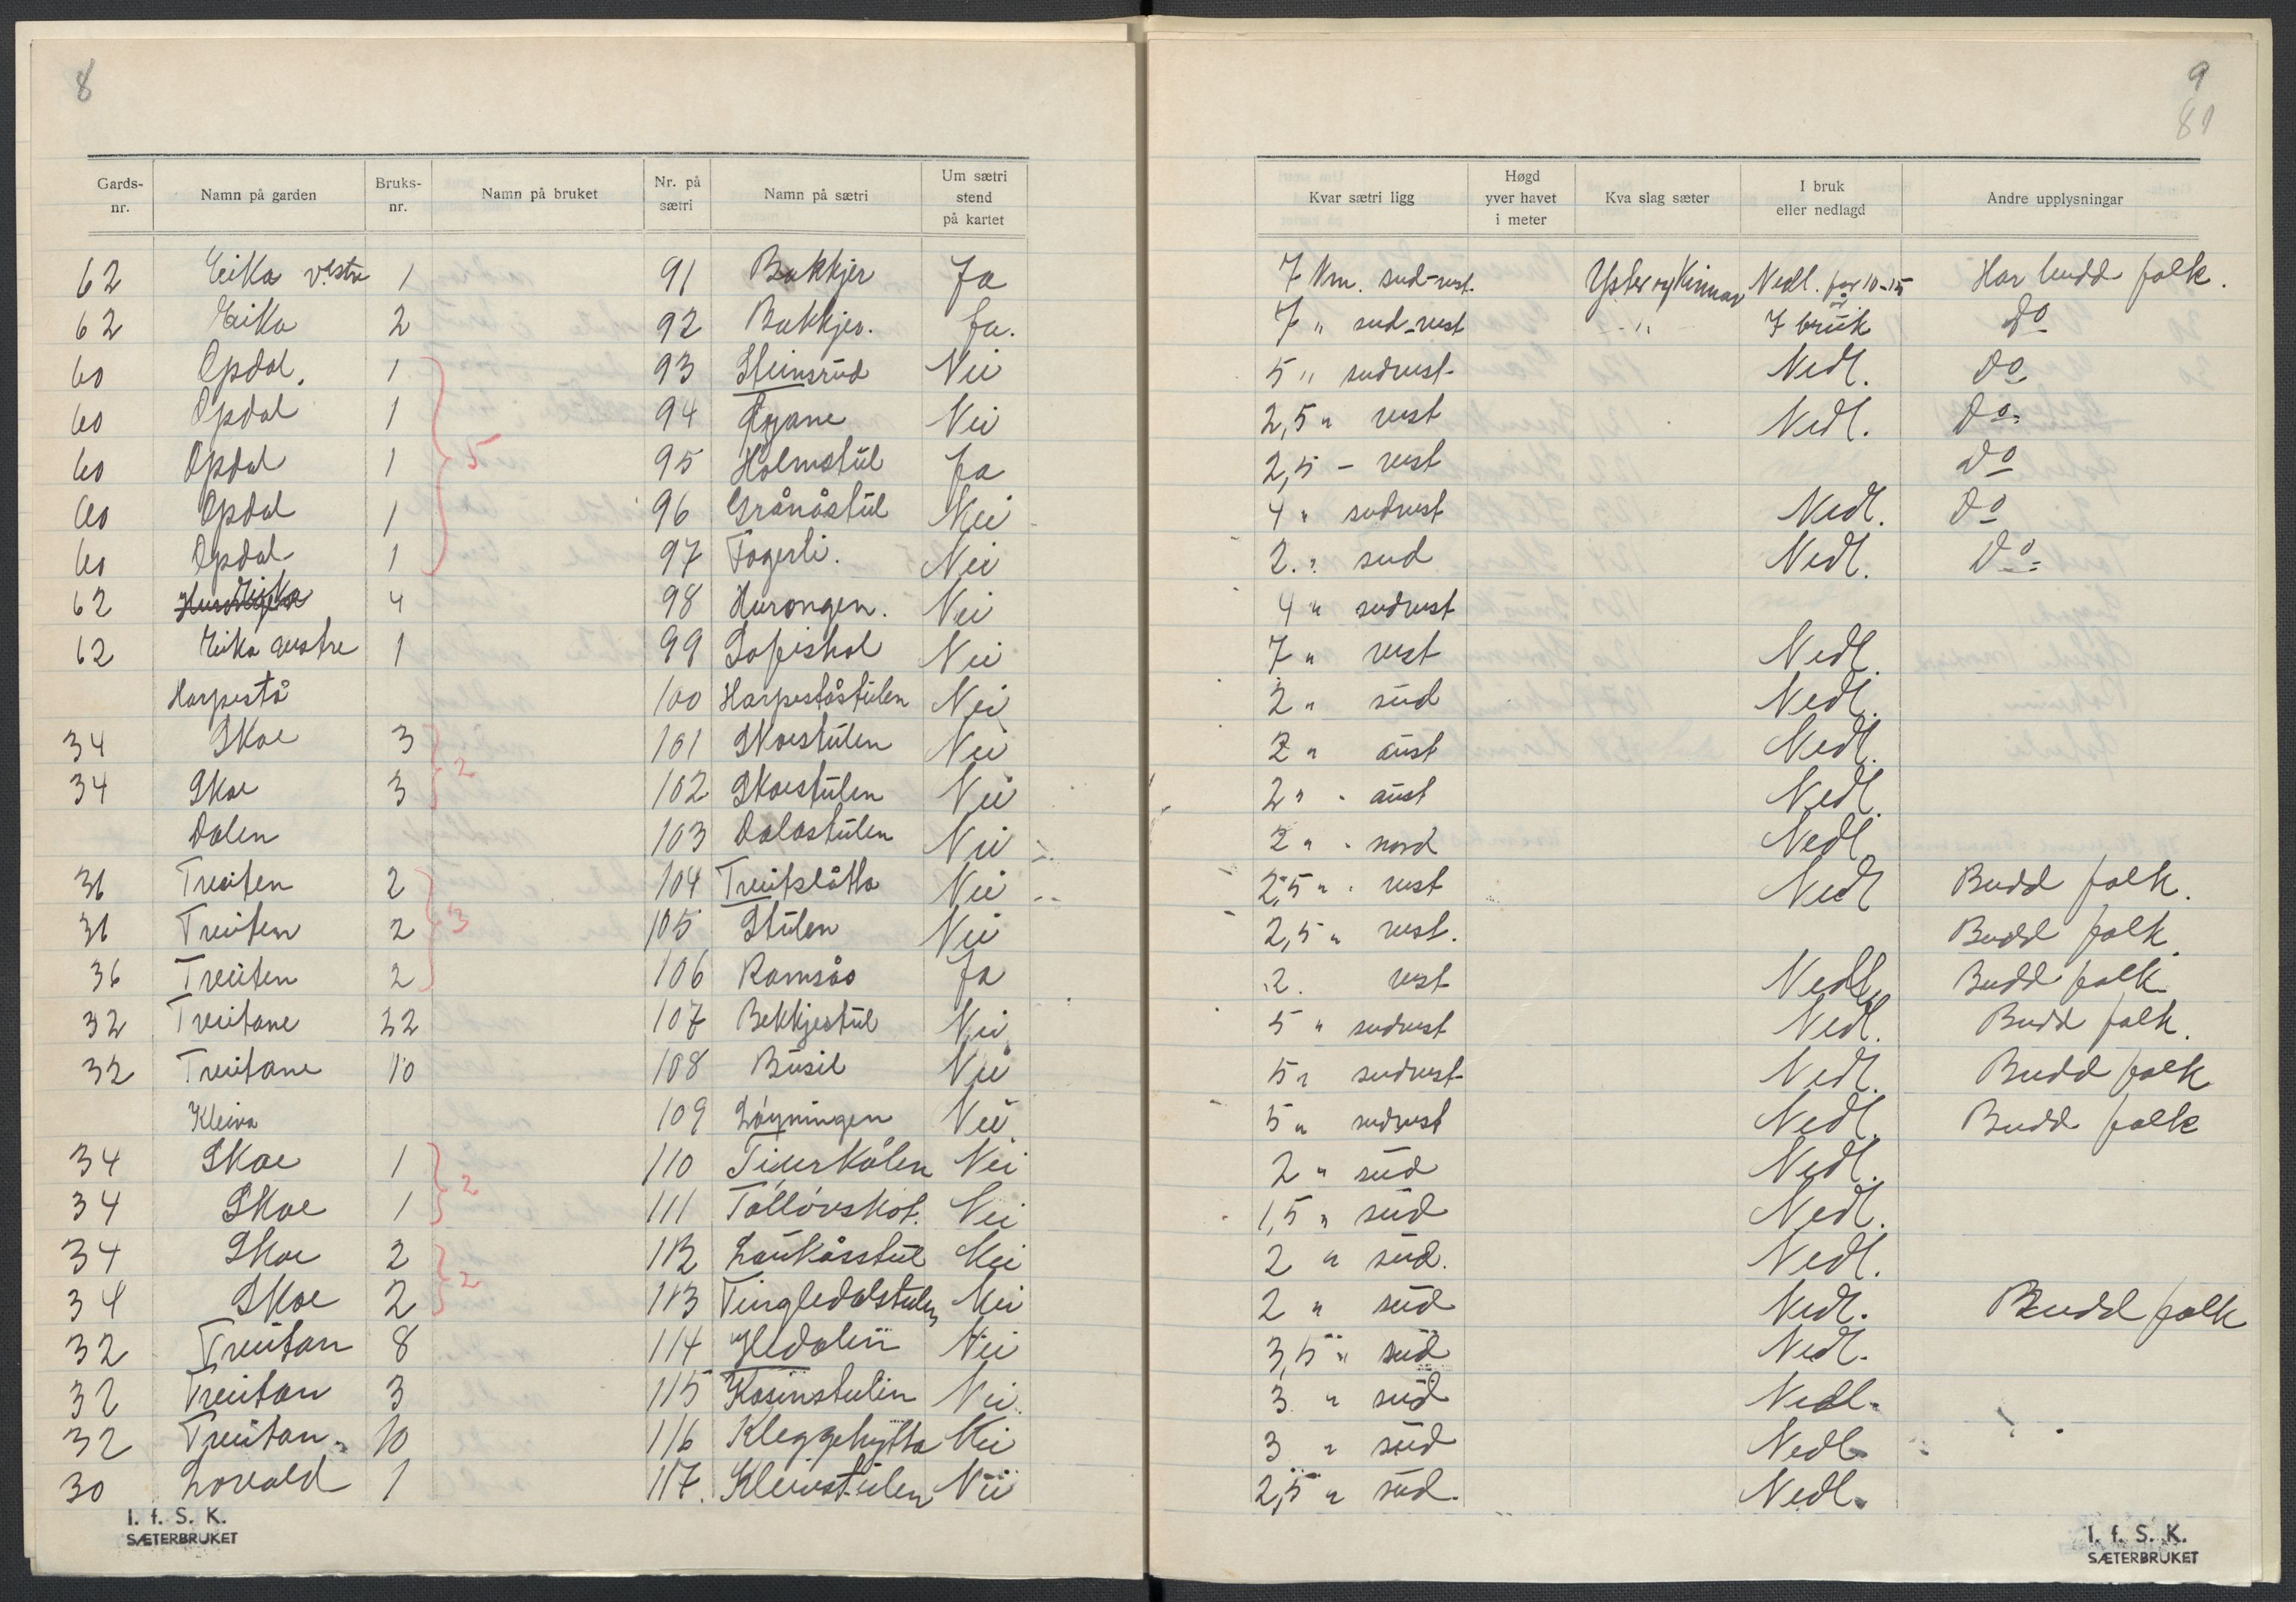 8
Gards-nr. Namn på garden Bruks-nr. Namn på bruket Nr. på sætri Namn på sætri Um sætri stend på kartet
62 Eika vestre 1 91 Bakkjer Ja
62 Eika 2 92 Bakkjer. Ja.
60 Opdal. 1 93 Steinsrud Nei
60 Opdal 1 94 Nei
60 Opdal 1 5 95 Holmstul Ja
60 Opdal 1 96 Grånåstul Nei
60 Opdal 1 97 Fagerli. Nei
62 Eika 4 98 Hurongen. Nei
62 Eika austre 1 99 Nei
Harpestå 100 Harpeståstulen Nei
34 Skoe 3 101 Skoestulen Nei
34 Skoe 3 2 102 Skoestulen Nei
Dalen 103 Dalastulen Nei
36 Treiten 2 104 Treitslåtta Nei
36 Treiten 2 3 105 Stulen Nei
36 Treiten 2 106 Ramsås Ja
32 Treitane 22 107 Bekkjestul Nei
32 Treitane 10 108 Busil Nei
Kleiva 109 Løyningen Nei
34 Skoe 1 110 Nei
34 Skoe 1 2 111 Nei
34 Skoe 2 112 Laukåsstul Nei
34 Skoe 2 2 113 Tingledalstulen Nei
32 Treitan 8 114 Nei
32 Treitan 3 115 Kasinstulin Nei
32 Treitan. 10 116 Kleggehytta Nei
30 Lovald 1 117. Kleivstulen Nei
I. f. S. K.
SÆTERBRUKET
9
81
Kvar sætri ligg Høgd yver havet i meter Kva slag sæter I bruk eller nedlagd Andre upplysningar
7 km. sud-vest. Yster og Kinnar Nedl. for 10-15 år Har budd folk.
7 " sud-vest " I bruk Do
5 " sudvest Nedl. Do
2,5 " vest Nedl. Do
2,5 - vest Do
4 " sudvest Nedl. Do
2. " sud Nedl. Do
4 " sudvest
7 " vest Nedl.
2 " sud Nedl.
2 " aust Nedl.
2 " aust Nedl.
2 " nord Nedl.
2,5 " vest Nedl Budd folk.
2,5 " vest. Budd folk.
2. vest Nedl. Budd folk
5 " sudvest Nedl. Budd folk.
5 " sudvest Nedl. Budd folk
5 " sudvest Nedl. Budd folk
2 " sud Nedl.
1,5 " sud Nedl.
2 " sud. Nedl.
2 " sud Nedl. Budd folk
3,5 " sud Nedl.
3 " sud Nedl.
3 " sud Nedl.
2,5 " sud. Nedl.
I. f. S. K.
SÆTERBRUKET